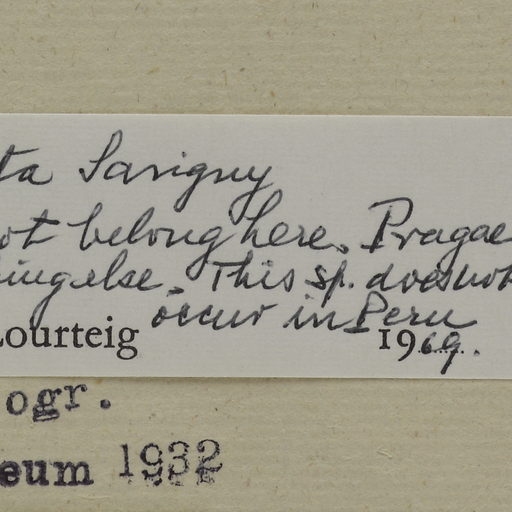 ta Savigny
ot belong here. Pragae
ing else. This sp. does not
occur in Peru
Lourteig 1969.
ogr.
eum 1932